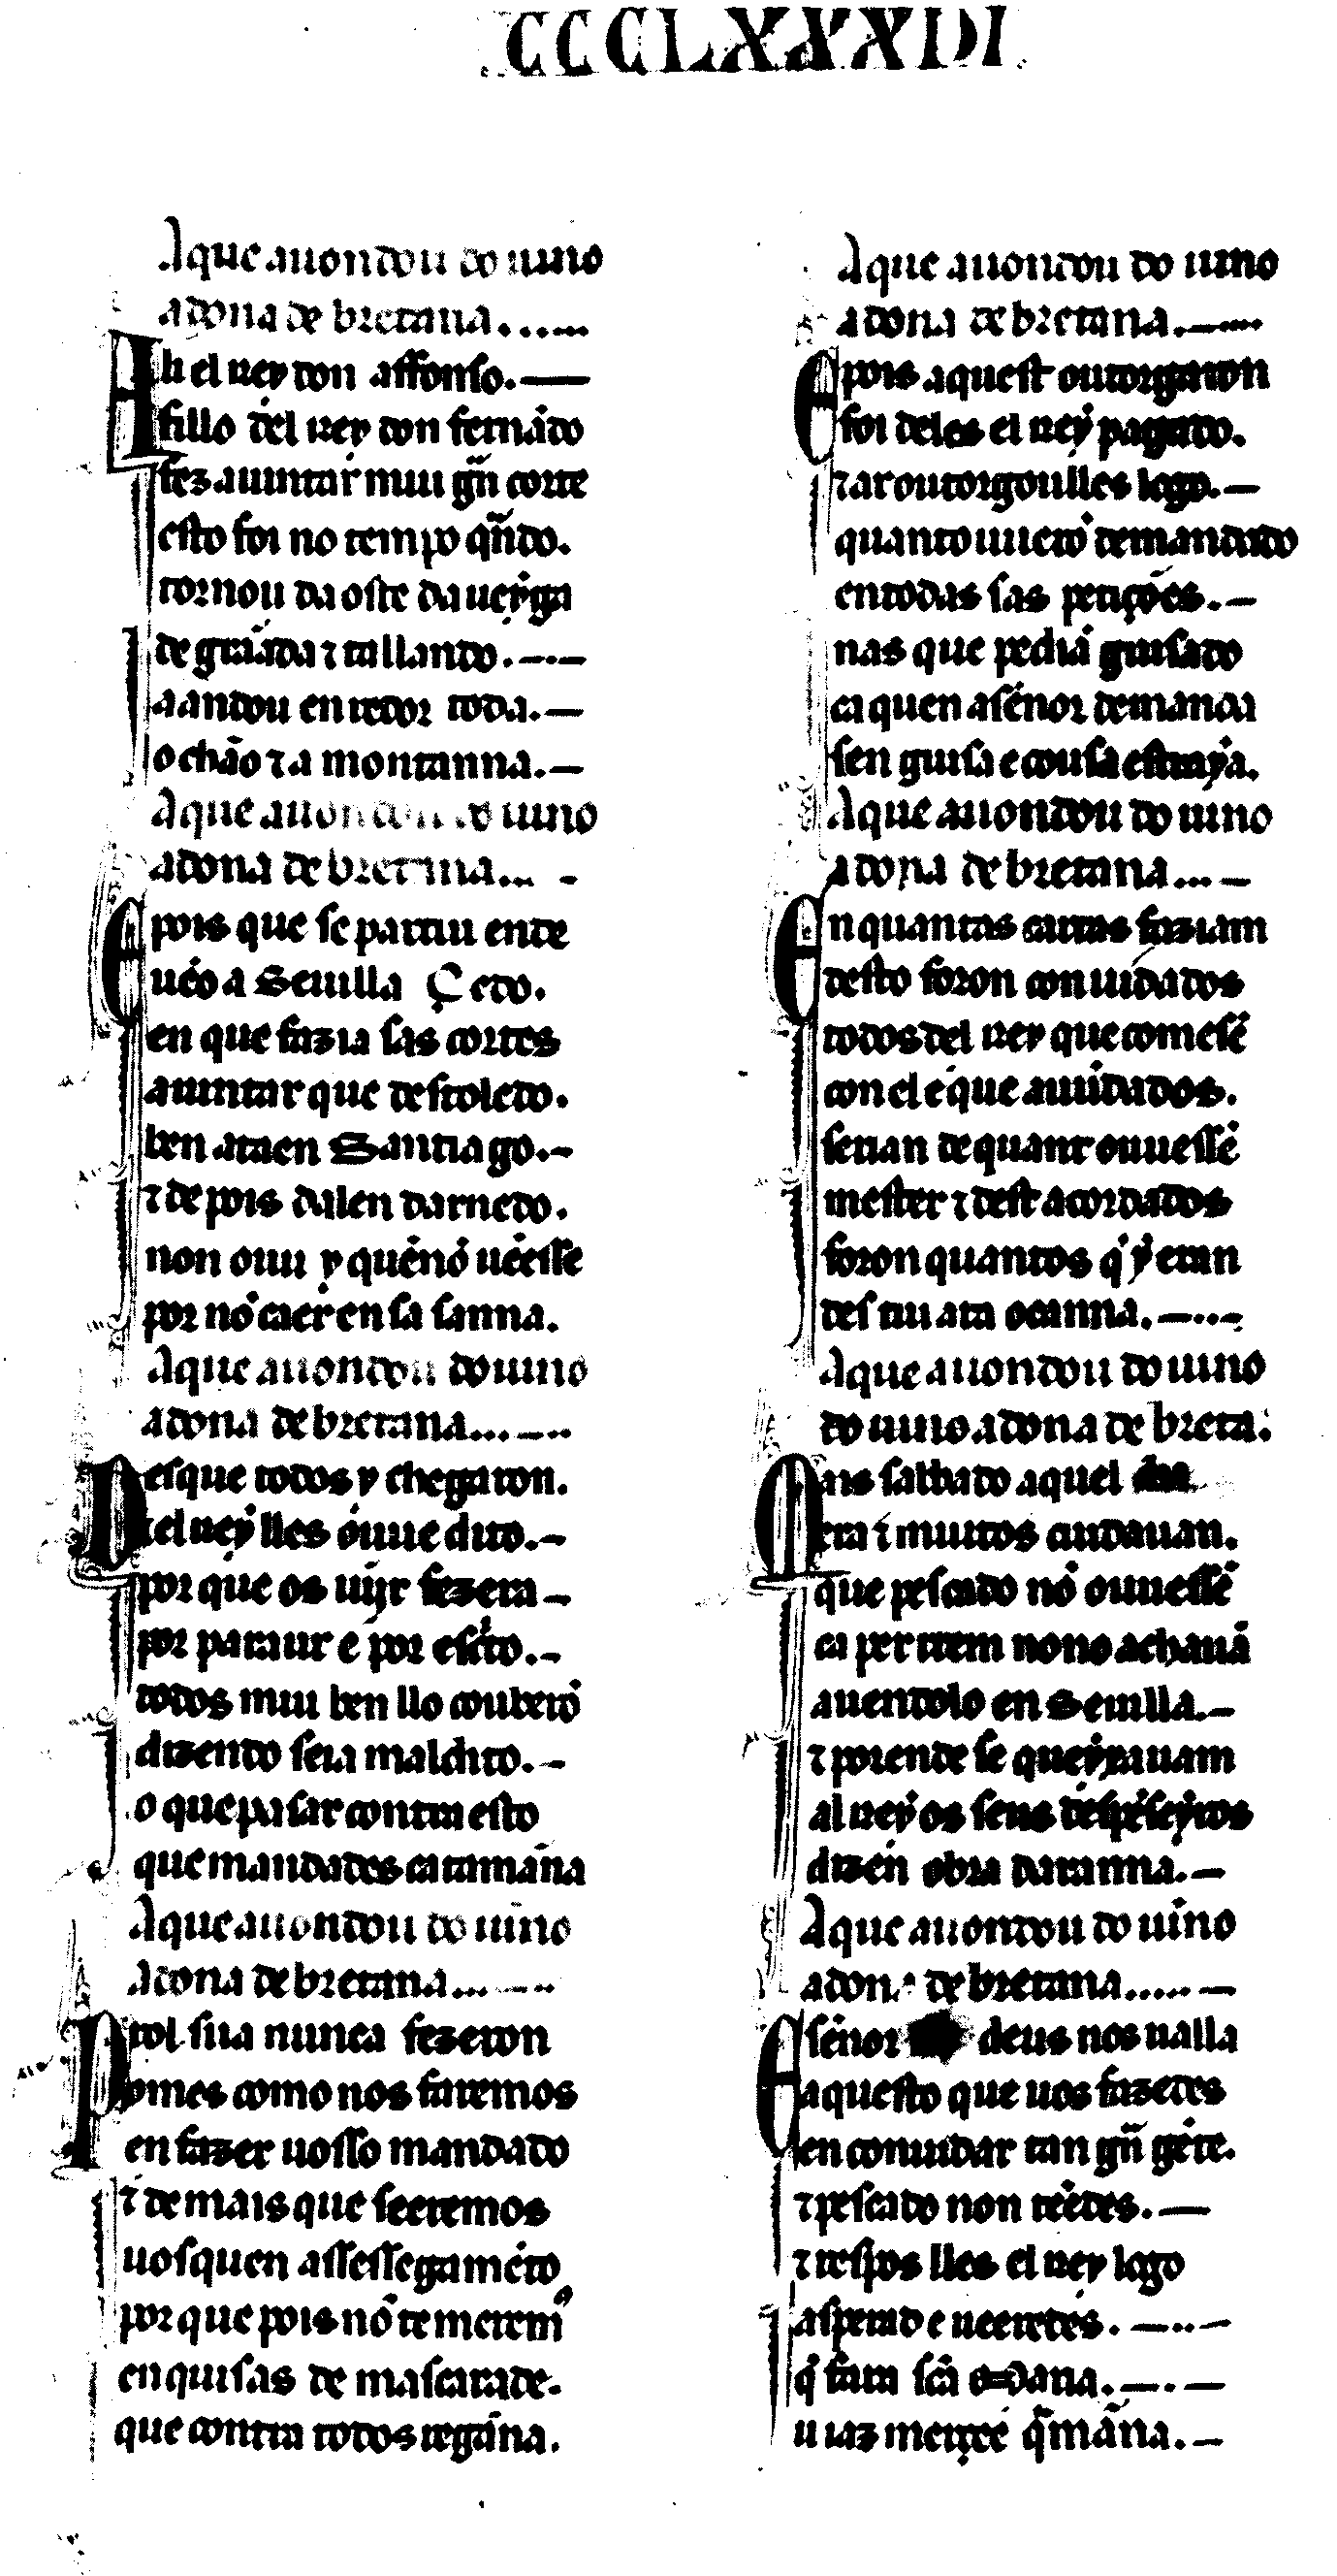 CCCLXXXVI
A que auondou do uino
a dona de bretana.....
Ali el rey don affonso.—
fillo del rey don fernãdo
fez aiuntar mui gñ corte
esto foi no tempo qñdo.
tornou da oste da ueyga
de grãada ⁊ tallando.—
a andou en redor toda.—
o chão ⁊ a montanna.—
A que auondou do uino
a dona de bretana... -
E pois que se partiu ende
uẽo a Seuilla çedo.
en que fazia sas cortes
aiuntar que des toledo.
ben ata en Santiago.-
⁊ depois dalen darnedo.
non ouu y quẽ nõ uẽesse
por nõ caer en sa sanna.
A que auondou do uino
a dona de bretana......
Des que todos y chegaron.
⁊ el rey lles ouue dito.-
por que os uĩjr fezera -
por paraur e por escrito.-
todos mui ben llo couberõ
dizendo seia maldito.-
o que pasar contra esto
que mandades ca tamãna
A que auondou do uino
A dona de bretana......
Prol sua nunca fezeron
omes como nos faremos
en fazer uosso mandado
⁊ demais que seeremos
uosquen assessegamẽto
por que pois nõ temerem9
enquisas de mascarade.
que contra todos regãna.
A que auondou do uino
a dona de bretana.—
E pois aquest outorgaron
foi deles el rey pagado.
⁊ ar outorgoulles logo.—
quanto uuerõ demandado
en todas sas petições.—
nas que pediã guisado
ca quen a sẽnor demanda
sen guisa e cousa estrãya.
A que auondou do uino
a dona de bretana...—
En quantas cartas faziam
desto foron conuidados
todos del rey que comesẽ
con el e que auiidados.
serian de quant ouuessẽ
mester ⁊ dest acordados
foron quantos q̇ y eran
des tui ata ocanna.—..-
A que auondou do uino
do uino a dona de breta.
Mas sabbado aquel dia
era ⁊ muitos cuidauan.
que pescado nõ ouuessẽ
ca per ren non o achauã
a uendolo en Seuilla.-
⁊ porende se queyxauam
al rey os seus despẽseyros
dizen obra daranna.—
A que auondou do uino
a dona de bretana.....—
E sẽnor deus nos ualla
a questo que uos fazedes
en conuidar tan gñ gẽte.
⁊ pescado non tẽedes.—
⁊ respos lles el rey logo
asperad e ueeredes.—..—
q̇ fara scã Maria.—.—
u iaz merçee q̃mãna.—